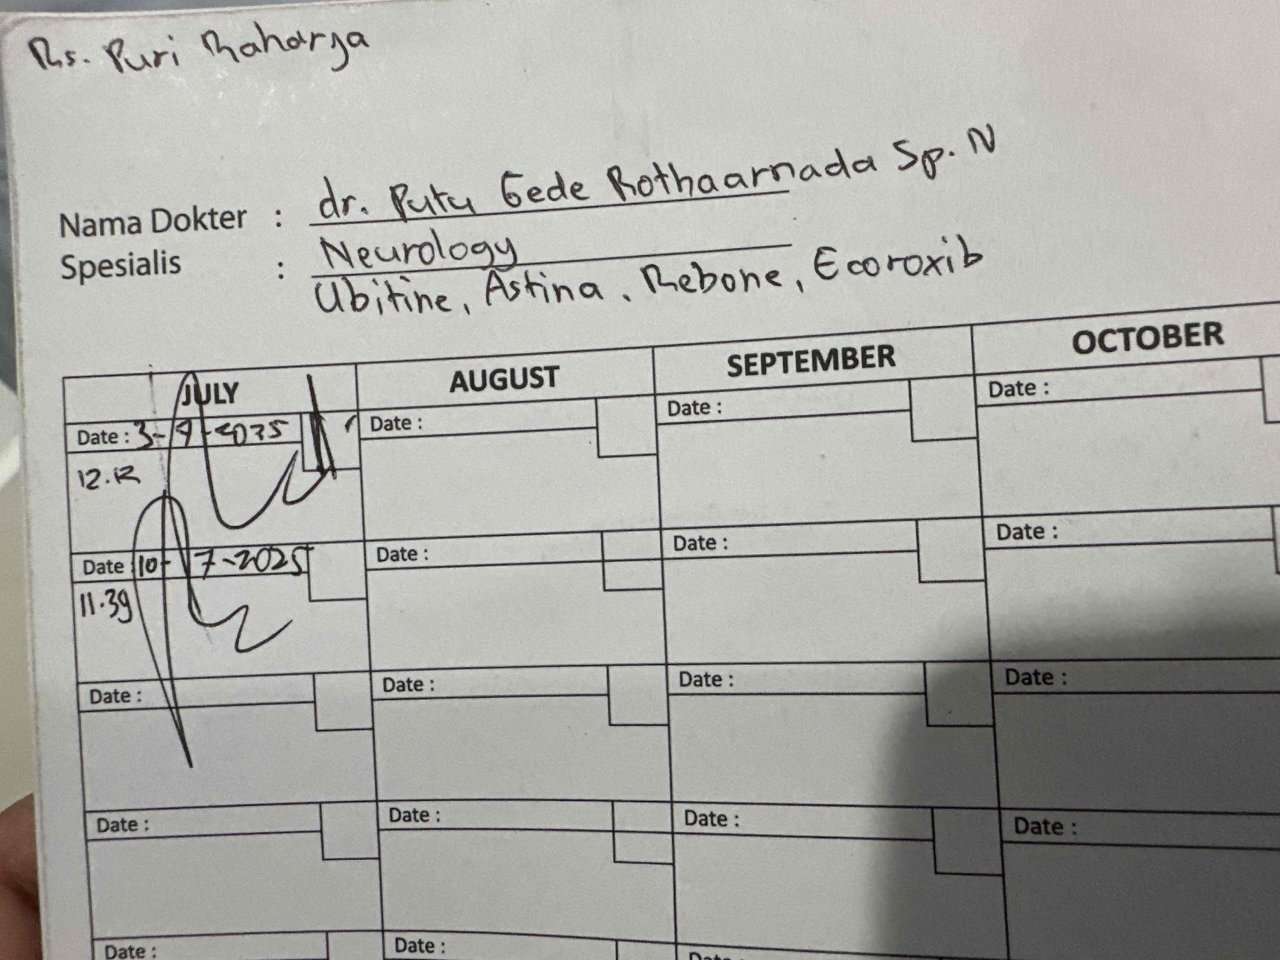 Rs. Puri Raharja
Nama Dokter : dr. Putu Gede Rothaarnada Sp. N
Spesialis : Neurology
Ubitine, Astina, Rebone, Ecoroxib
JULY AUGUST SEPTEMBER OCTOBER
Date : 3-7-2025 Date : Date : Date :
12.12
Date 10-7-2025 Date : Date : Date :
11.39
Date : Date : Date : Date :
Date : Date : Date : Date :
Date : Date : Date :